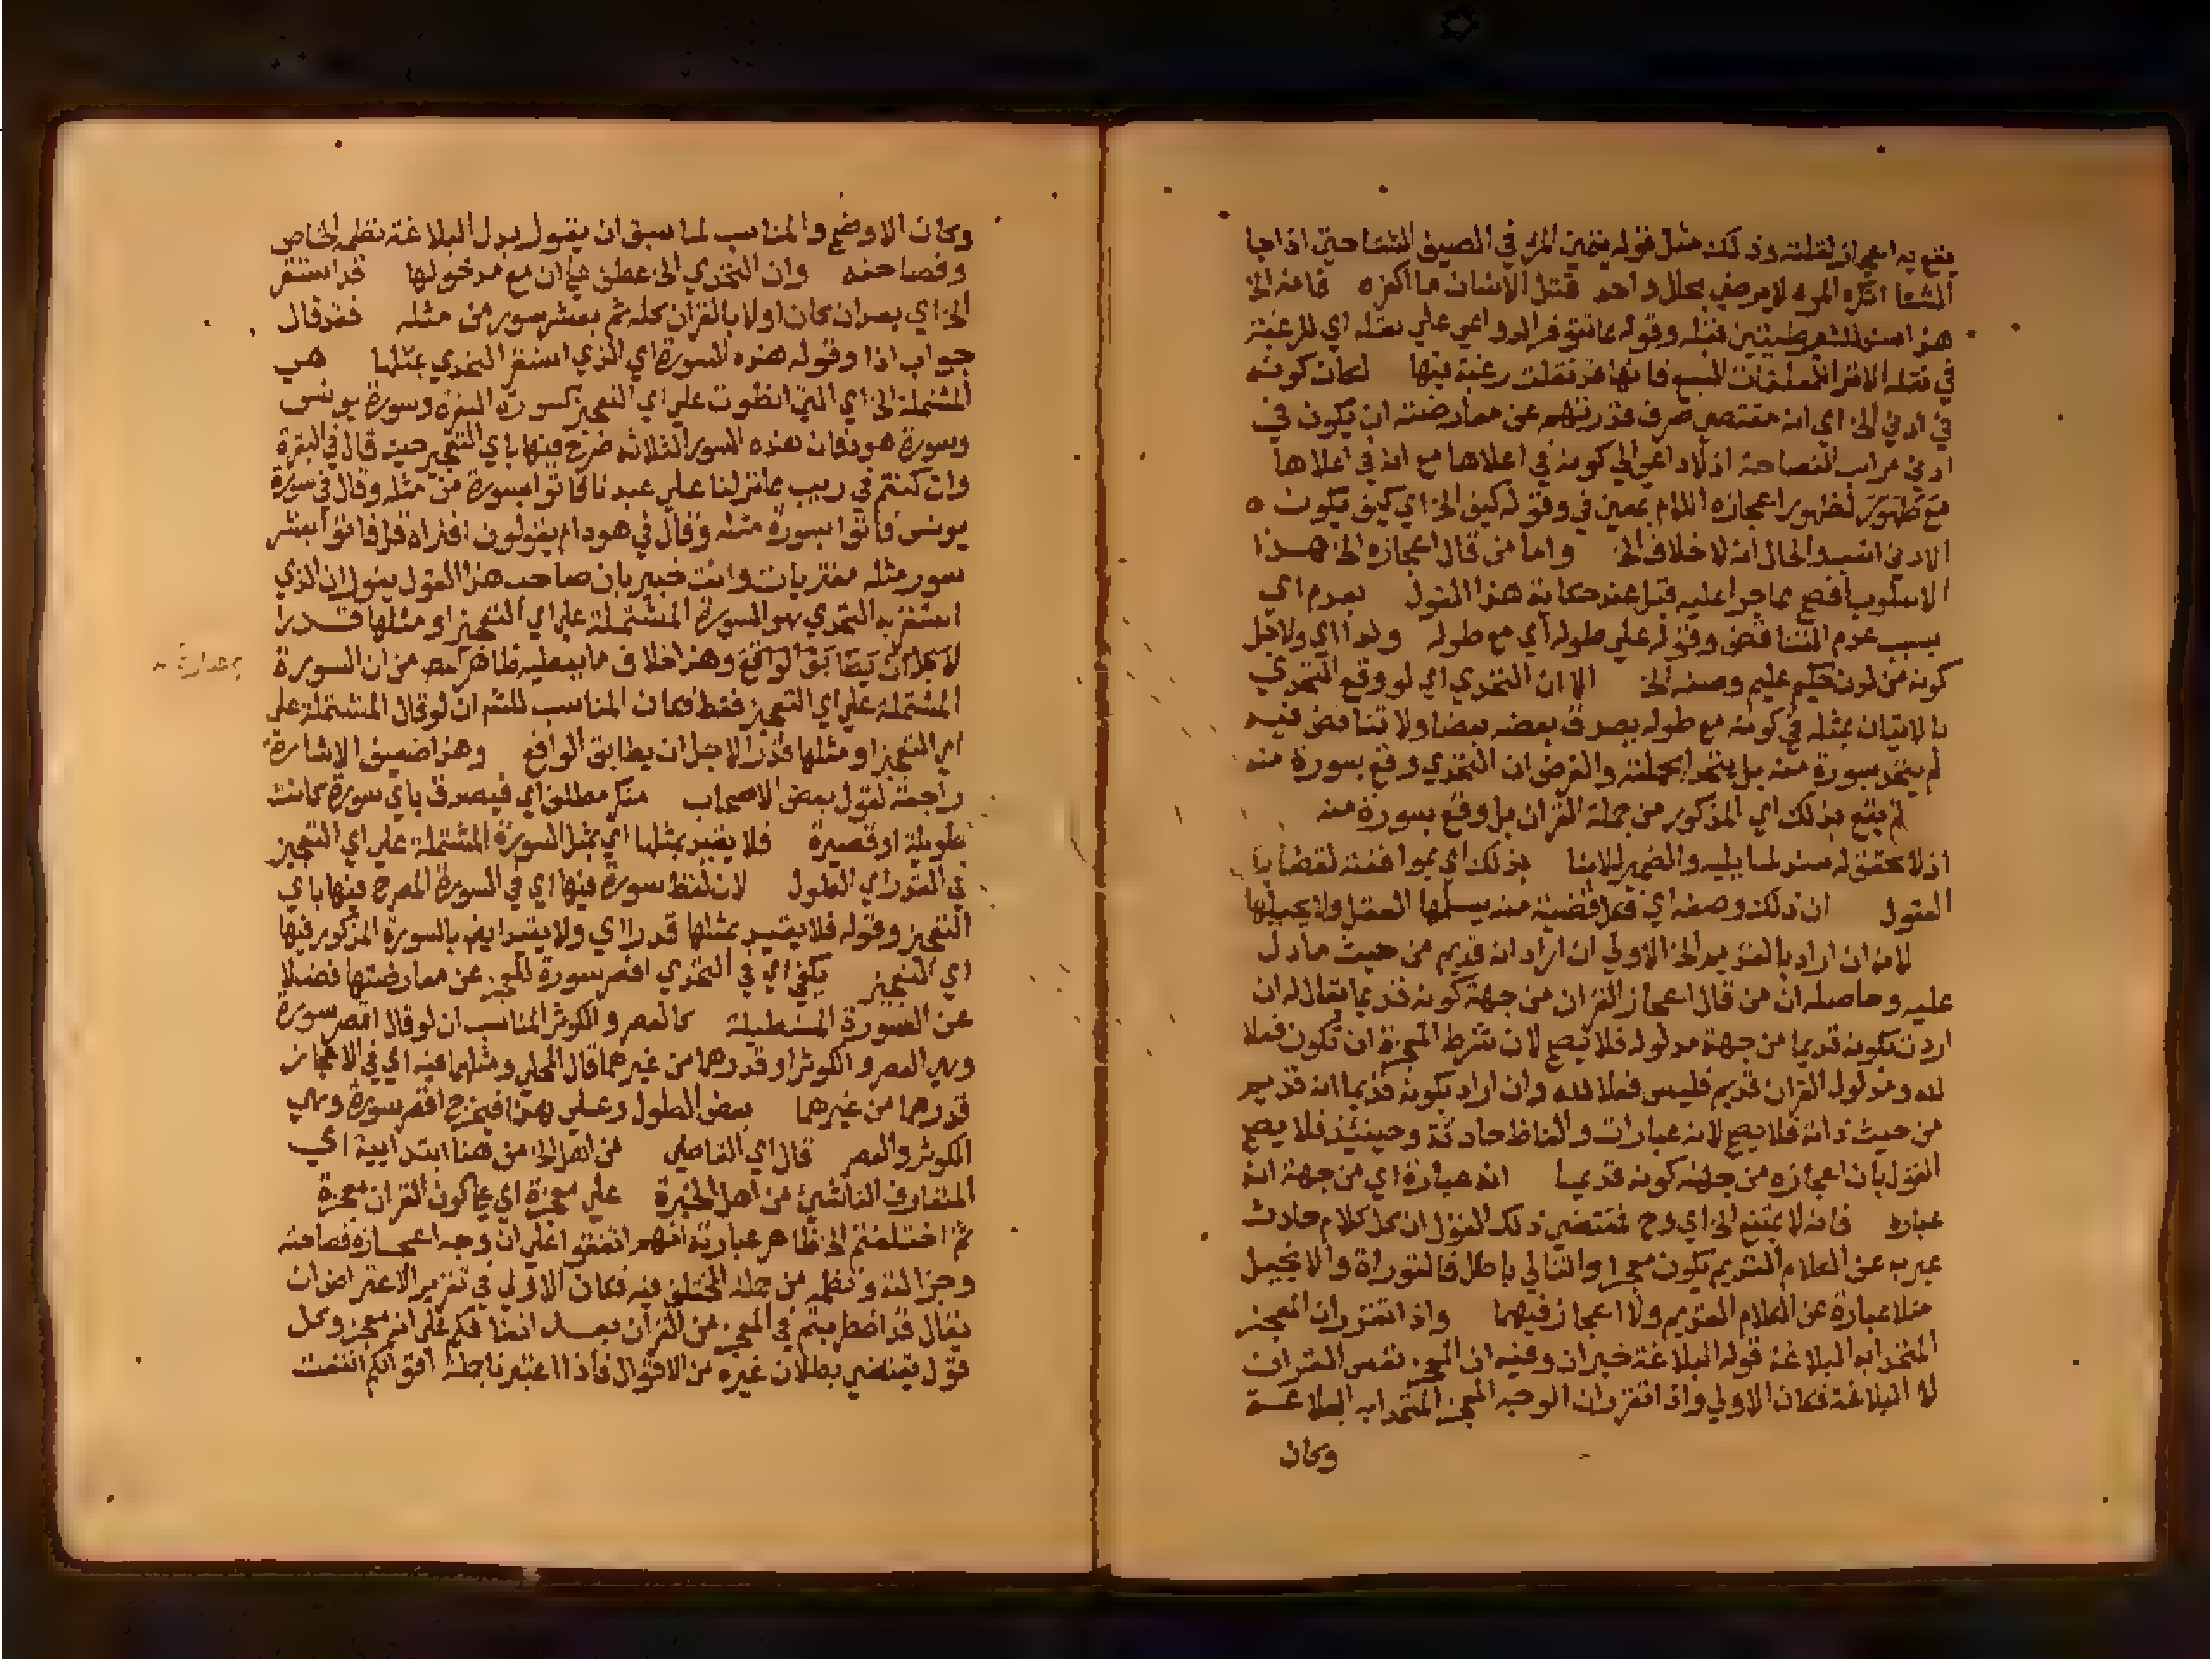 يقع به اعجاز لقلته وذلك مثل قوله يتمني المرء في الصيف الشتا حتي اذا جا
الشتا انكره المرء لا يرضي بحال واحد قتل الانسان ما اكفره فانه الخ
هذا اسني للشرطيتين قبله وقوله مما تتوفر الدواعي علي نقله اي للرغبة
في نقله الا تر المعلقات السبع فانها قد نقلت رغبة فيها لكان كونه
في ادني الخ اي انه مقتضي صرف قدرتهم عن معارضته ان يكون في
ادني مراتب الفصاحة اذ لا داعي الي كونه في اعلاها مع انه في اعلاها
مع ظهور لظهور اعجازه اللام بمعني في وقوله كيف الخ اي كيف يكون
الادني اشد والحال انه لا خلاف الخ واما من قال اعجازه الخ هذا
الاسلوب افصح مما جرا عليه قبل عند حكاية هذا القول بعدم اي
بسبب عدم التناقض وقوله علي طوله اي مع طوله ولذا اي ولاجل
كونه من لدن حكيم عليم وصفه الخ الا ان التحدي اي لو وقع التحدي
بالاتيان بمثله في كونه مع طوله يصدق بعضه بعضا ولا تناقض فيه
لم يتحد بسورة منه بل يتحدا بجملته والفرض ان التحدي وقع بسورة منه
لم يقع بذلك اي المذكور من جملة القران بل وقع بسورة منه
اذ لا تحقق له سند لما يليه والضمير للامنا بذلك اي بموافقته لقضايا
العقول ان ذلك وصفه اي فكل قضية منه يسلمها العقل ولا يحيلها
لانه ان اراد بالقديم الخ الاولي ان اراد انه قديم من حيث ما دل
عليه وحاصله ان من قال اعجاز القران من جهة كونه قديما يقال له ان
اردت بكونه قديما من جهة مدلوله فلا يصح لان شرط المعجزة ان تكون فعلا
لله ومدلول القران قديم فليس فعلا لله وان اراد بكونه قديما انه قديم
من حيث ذاته فلا يصح لانه عبارات والفاظ حادثة وحينئذ فلا يصح
القول بان اعجازه من جهة كونه قديما انه عبارة اي من جهة انه
عبارة فانه لا يمتنع الخ اي وح فمقتضي ذلك القول ان كل كلام حادث
عبر به عن الكلام القديم يكون معجزا والتالي باطل فالتوراة والانجيل
مثلا عبارة عن الكلام القديم ولا اعجاز فيهما واذا تقرر ان المعجز
المتحدا به البلاغة قوله البلاغة خبر ان وفيه ان المعجز نفس القران
لا البلاغة فكان الاولي واذا تقرر ان الوجه المعجز المتحدا به البلاغة
وكان
وكان الاوضح والمناسب لما سبق ان يقول بدل البلاغة نظمه الخاص
وفصاحته وان التحدي الخ عطف علي ان مع مدخولها قد استقر
الخ اي بعد ان كان اولا بالقران كله ثم بعشر سور من مثله فقد قال
جواب اذا وقوله هذه السورة اي الذي استقر التحدي بمثلها هي
المشتملة الخ اي التي انطوت علي اي التعجيز كسورة البقرة وسورة يونس
وسورة هود فان هذه السور الثلاثة صرح فيها باي التعجيز حيث قال في البقرة
وان كنتم في ريب مما نزلنا علي عبدنا فاتوا بسورة من مثله وقال في سورة
يونس فاتوا بسورة مثله وقال في هود ام يقولون افتراه قل فاتوا بعشر
سور مثله مفتريات وانت خبير بان صاحب هذا القول يقول ان الذي
استقر به التحدي هو السورة المشتملة علي اي التعجيز او مثلها قدرا
لاجل ان يطابق الواقع وهذا خلاف ما يعطيه ظاهر من ان السورة
المشتملة علي اي التعجيز فقط فكان المناسب للشم ان لو قال المشتملة علي
اي التعجيز او مثلها قدرا لاجل ان يطابق الواقع وهذا ضعيف الاشارة
راجعة لقول بعض الاصحاب منكر مطلق اي فيصدق باي سورة كانت
طويلة او قصيرة فلا يقيد بمثلها اي بمثل السورة المشتملة علي اي التعجيز
في القدر اي الطول لان لفظ سورة فيها اي في السورة المصرح فيها باي
التعجيز وقوله فلا يقيد بمثلها قدرا اي ولا يقيد ايضا بالسورة المذكور فيها
اي التعجيز يكفي اي في التحدي اقصر سورة للعجز عن معارضتها فضلا
عن السورة المستطيلة كالعصر والكوثر المناسب ان لو قال اقصر سورة
وهي العصر والكوثر او قدرهما من غيرهما قال المحلي ومثلهما فيه اي في الاعجاز
قدرهما من غيرهما بعض الطول وعلي هذا فيخرج اقصر سورة وهي
الكوثر والعصر قال اي القاضي من اهل الخ من هنا ابتدايية اي
المتعارف الناشئ من اهل الخبرة علي معجزة اي علي كون القران معجزة
ثم اختلفتم الخ ظاهر عبارته انهم اتفقوا علي ان وجه اعجازه فصاحته
وجزالته ونظمه من جملة المختلف فيه فكان الاولي في تقرير الاعتراض ان
يقال قد اضطربتم في المعجز من القران بعد اتفاقكم علي انه معجز وكل
قول يقتضي بطلان غيره من الاقوال فاذا اعتبرنا جملة اقوالكم انتفت